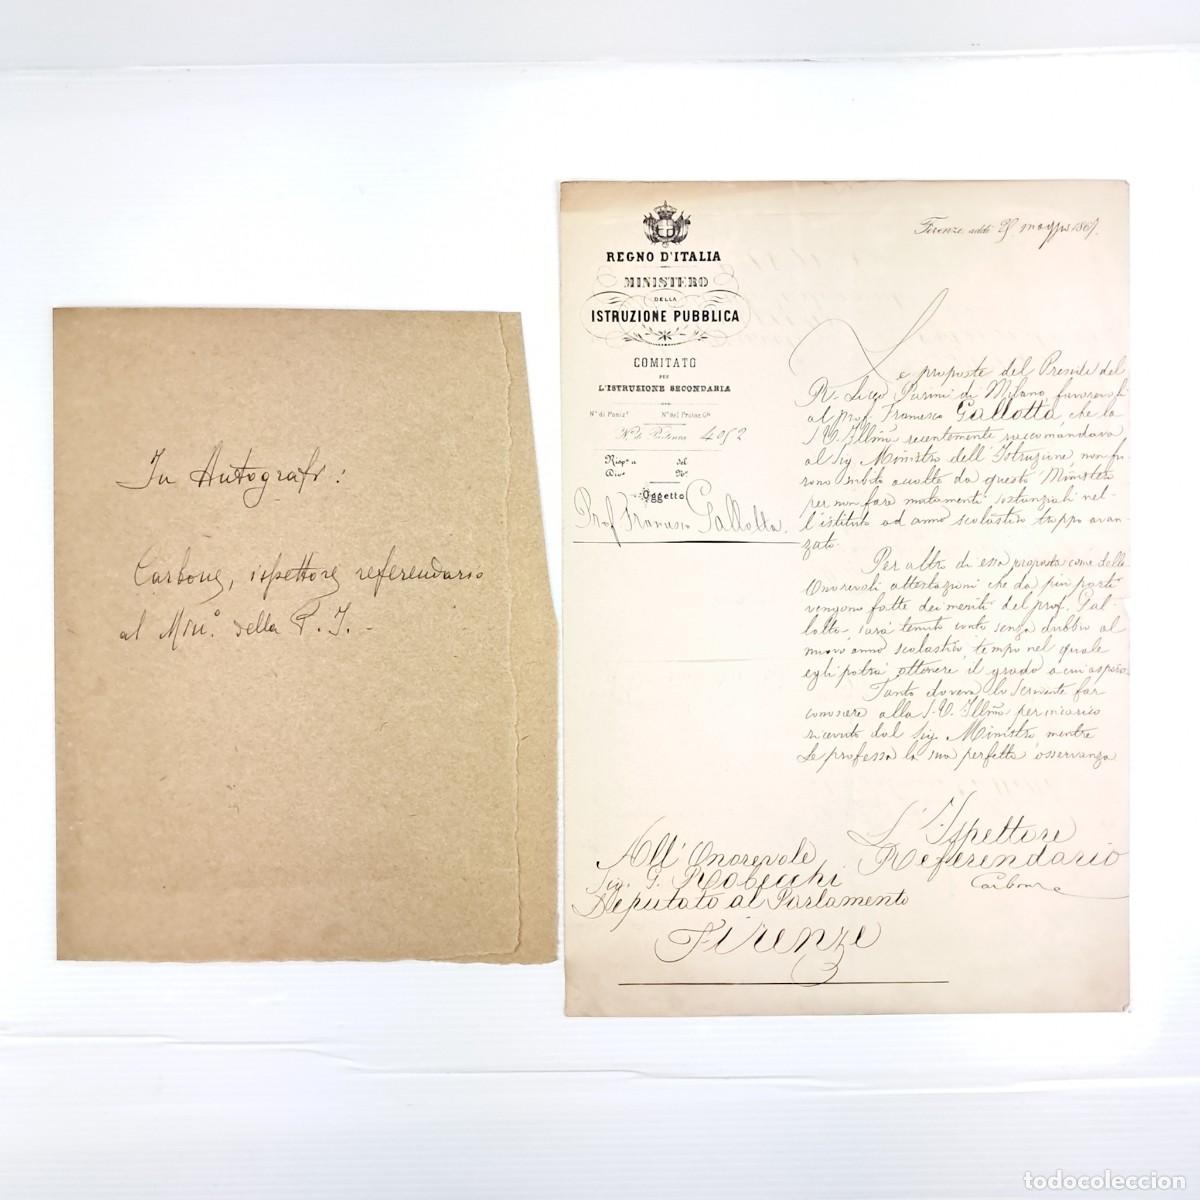 In Autografi:
Carbone, ispettore referendario
al Min.º della P. I. -
REGNO D'ITALIA
MINISTERO
DELLA
ISTRUZIONE PUBBLICA
COMITATO
PER
L'ISTRUZIONE SECONDARIA
Nº di Posizº Nº del Protoc Gle
Nº di Partenza 4052
Rispª a del
Divª Nº
Oggetto
Prof Francesco Gallotta.
Firenze addì 29 maggio 1867.
Le proposte del Preside del
R. Liceo Parini di Milano favorevoli
al prof. Francesco Gallotta che la
S. V. Illma recentemente raccomandava
al Sig. Ministro dell'Istruzione non fu-
rono subito accolte da questo Ministero
per non fare mutamenti sostanziali nel-
l'istituto ad anno scolastico troppo avan-
zato.
Per altro di essa proposta come delle
Onorevoli attestazioni che da più parti
vengono fatte dei meriti del prof. Gal-
lotta, sarà tenuto conto senza dubbio al
nuovo anno scolastico, tempo nel quale
egli potrà ottenere il grado a cui aspira.
Tanto doveva lo scrivente far
conoscere alla S. V. Illma per incarico
ricevuto dal Sig. Ministro mentre
Le professa la sua perfetta osservanza
L'Ispettore
Referendario
Carbone
All' Onorevole
Sig. G. Robecchi
Deputato al Parlamento
Firenze
todocoleccion